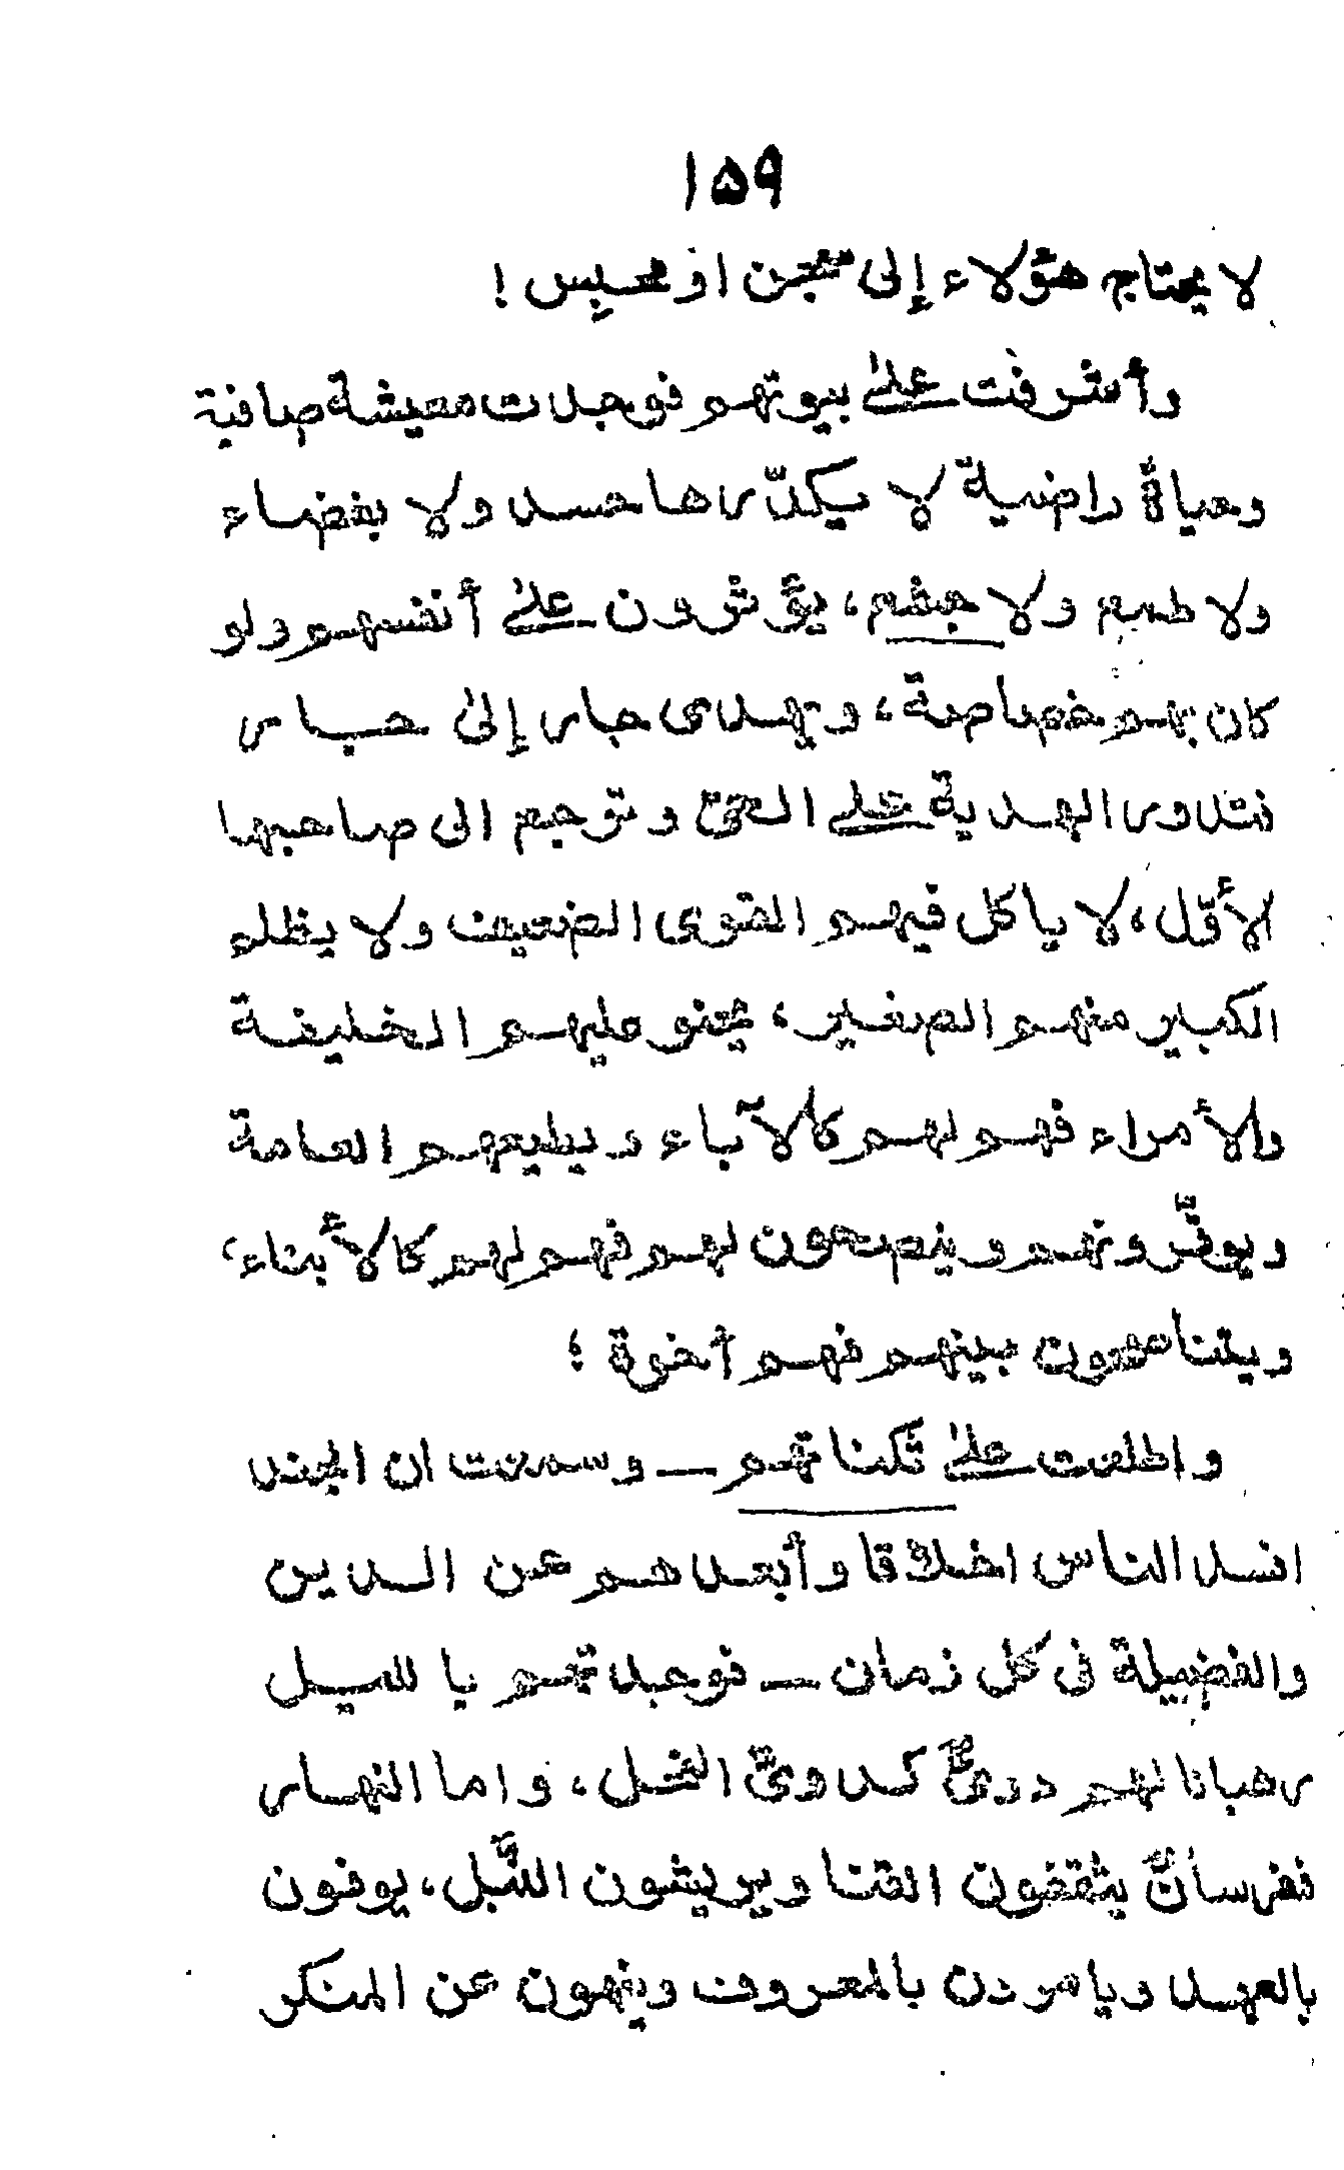 ١٥٩
لا يحتاج هؤلاء إلى سجن او محبس !
وأشرفت على بيوتهم فوجدت معيشة صافية
وحياة راضية لا يكدّرها حسد ولا بغضاء
ولا طمع ولا جشع، يؤثرون على أنفسهم ولو
كان بهم خصاصة، ويهدى جار إلى جار
فتدور الهدية على الحيّ وترجع الى صاحبها
الأوّل، لا يأكل فيهم القوى الضعيف ولا يظلم
الكبير منهم الصغير، يحنو عليهم الخليفة
والأمراء فهم لهم كالآباء ويطيعهم العامة
ويوقّرونهم وينصحون لهم فهم لهم كالأبناء،
ويتناصحون بينهم فهم أخوة ؛
واطلعت على ثكناتهم — وسمعت ان الجند
افسد الناس اخلاقا وأبعدهم عن الدين
والفضيلة فى كل زمان — فوجدتهم يا لليل
رهبانا لهم دوىٌّ كدوىّ النحل، واما النهار
ففرسانٌ يثقفون القنا ويريشون النَّبل، يوفون
بالعهد ويامرون بالمعروف وينهون عن المنكر